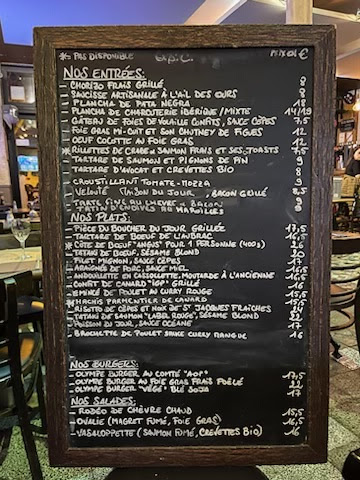 *: PAS DISPONIBLE
PRIX EN €
NOS ENTRÉES:
- CHORIZO FRAIS GRILLÉ 8
- SAUCISSE ARTISANALE À L'AIL DES OURS 8
- PLANCHA DE PATA NEGRA 18
- PLANCHA DE CHARCUTERIE IBÉRIQUE / MIXTE 14/19
- GÂTEAU DE FOIES DE VOLAILLE CONFITS, SAUCE CÈPES 7,5
- FOIE GRAS MI-CUIT ET SON CHUTNEY DE FIGUES 12
- OEUF COLETTE AU FOIE GRAS 12
* RILLETTES DE CRABE & SAUMON FRAIS ET SES TOASTS 7,5
- TARTARE DE SAUMON ET PIGNONS DE PIN 9
- TARTARE D'AVOCAT ET CREVETTES BIO 9
- CROUSTILLANT TOMATE-MOZZA 8
- VELOUTÉ DU JOUR, BACON GRILLÉ 8,5
- TARTE FINE AU CHÈVRE & BACON 9
- TATIN D'ENDIVES AU MAROILLES 9
NOS PLATS:
- PIÈCE DU BOUCHER DU JOUR GRILLÉE 17,5
- TARTARE DE BOEUF DE L'AUBRAC 16,5
* CÔTE DE BOEUF "ANGUS" POUR 1 PERSONNE (400g) 26
- TATAKI DE BOEUF, SÉSAME BLOND 20
- FILET MIGNON SAUCE CÈPES 17
- ARAIGNÉE DE PORC, MIEL 16,5
- ANDOUILLETTE EN CASSOLETTE, MOUTARDE À L'ANCIENNE 16,5
- CONFIT DE CANARD "IGP" GRILLÉ 16
- EMINCÉ DE POULET AU CURRY ROUGE 15,5
* HACHIS PARMENTIER DE CANARD
- RISOTTO DE CÈPES ET NOIX DE ST JACQUES FRAÎCHES 24
- TATAKI DE SAUMON "LABEL ROUGE", SÉSAME BLOND 22
- POISSON DU JOUR, SAUCE OCÉANE 17
- BROCHETTE DE POULET SAUCE CURRY MANGUE 16
NOS BURGERS:
- OLYMPE BURGER AU COMTÉ "AOP" 17,5
- OLYMPE BURGER AU FOIE GRAS FRAIS POÊLÉ 22
- OLYMPE BURGER "VÉGÉ" BLÉ SOJA 17
NOS SALADES:
- RODÉO DE CHÈVRE CHAUD 15,5
- OVALIE (MAGRET FUMÉ, FOIE GRAS) 16,5
- VASALOPPETTE (SAUMON FUMÉ, CREVETTES BIO) 16